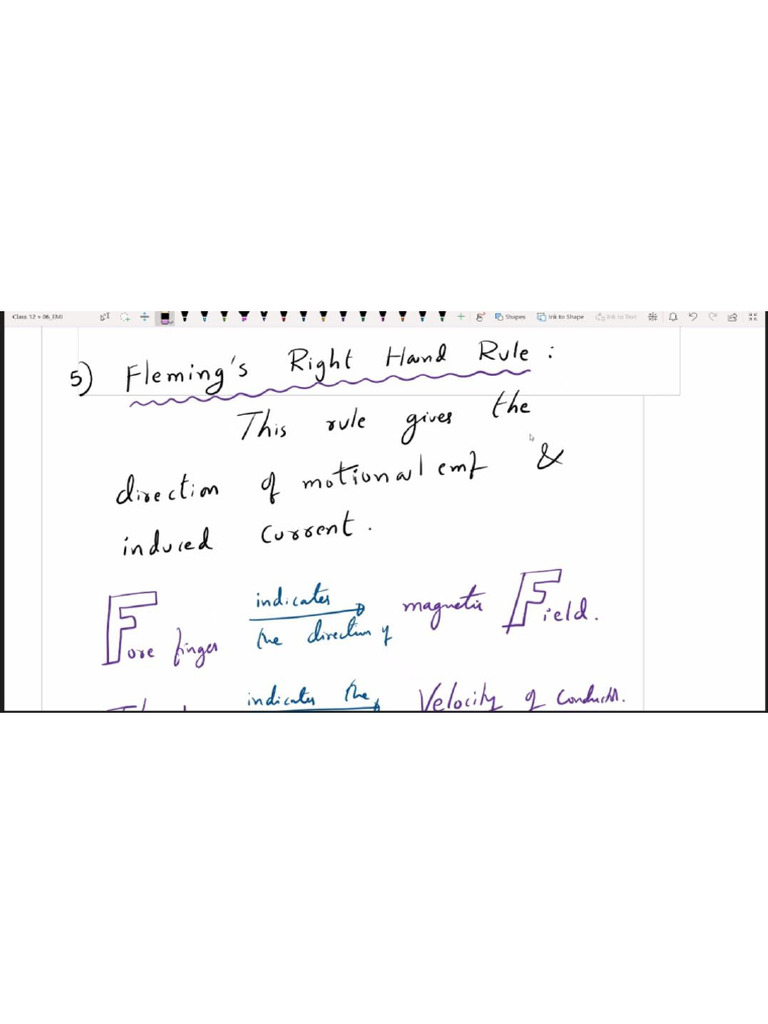 Class 12 - 06_EMI
Shapes
Ink to Shape
Ink to Text
5) Fleming's Right Hand Rule :
This rule gives the
direction of motional emf &
induced current .
Fore finger indicates the direction of magnetic Field.
indicates the Velocity of